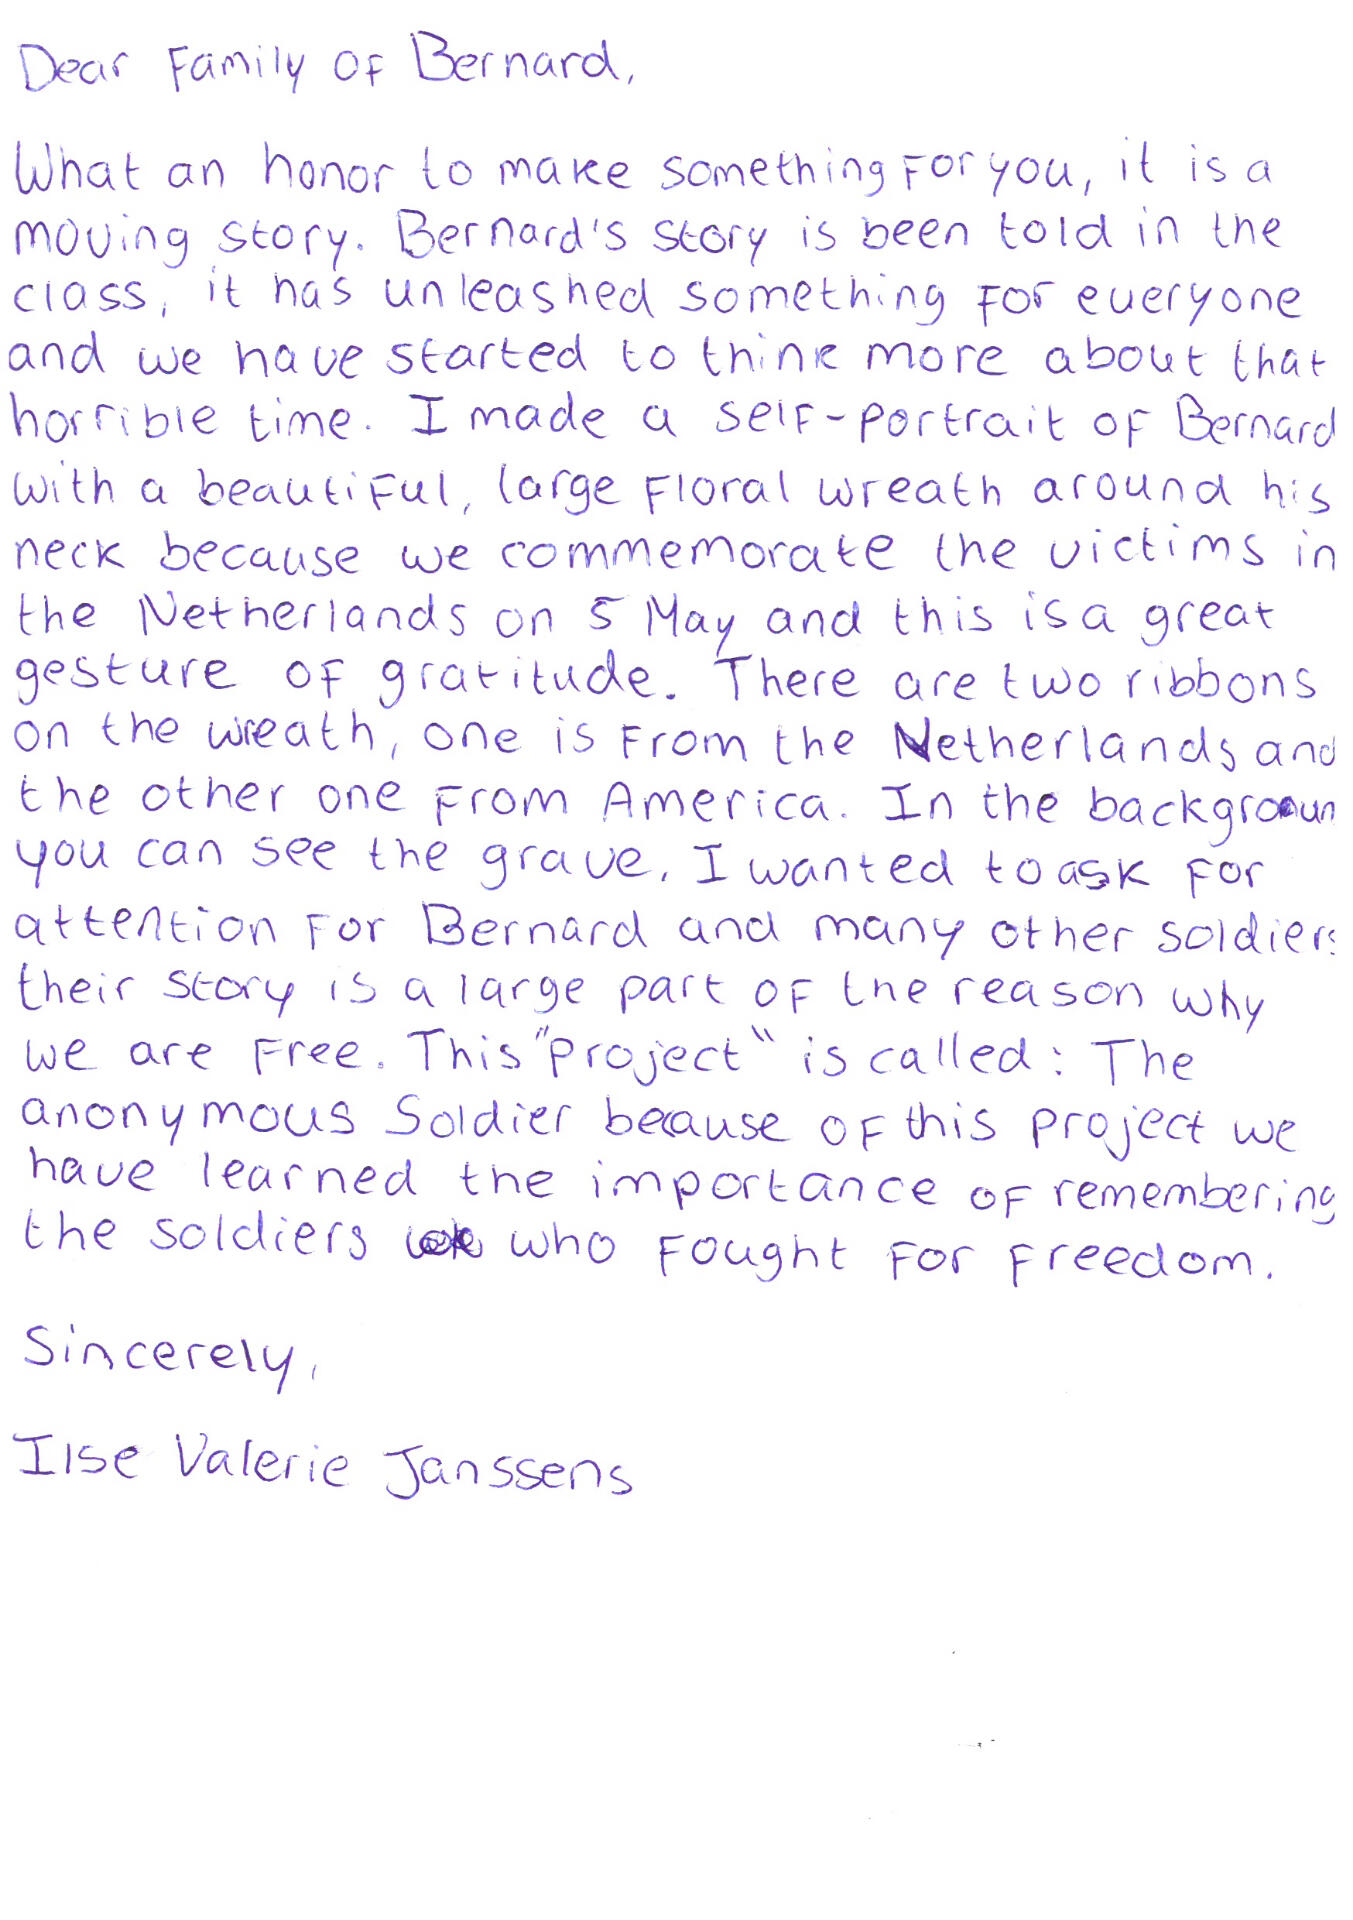 Dear Family of Bernard,
What an honor to make something for you, it is a
moving story. Bernard's story is been told in the
class, it has unleashed something for everyone
and we have started to think more about that
horrible time. I made a self-portrait of Bernard
with a beautiful, large floral wreath around his
neck because we commemorate the victims in
the Netherlands on 5 May and this is a great
gesture of gratitude. There are two ribbons
on the wreath, one is from the Netherlands and
the other one from America. In the backgroun
you can see the grave. I wanted to ask for
attention for Bernard and many other soldiers
their story is a large part of the reason why
we are free. This "project" is called: The
anonymous Soldier because of this project we
have learned the importance of remembering
the soldiers who fought for freedom.
Sincerely,
Ilse Valerie Janssens